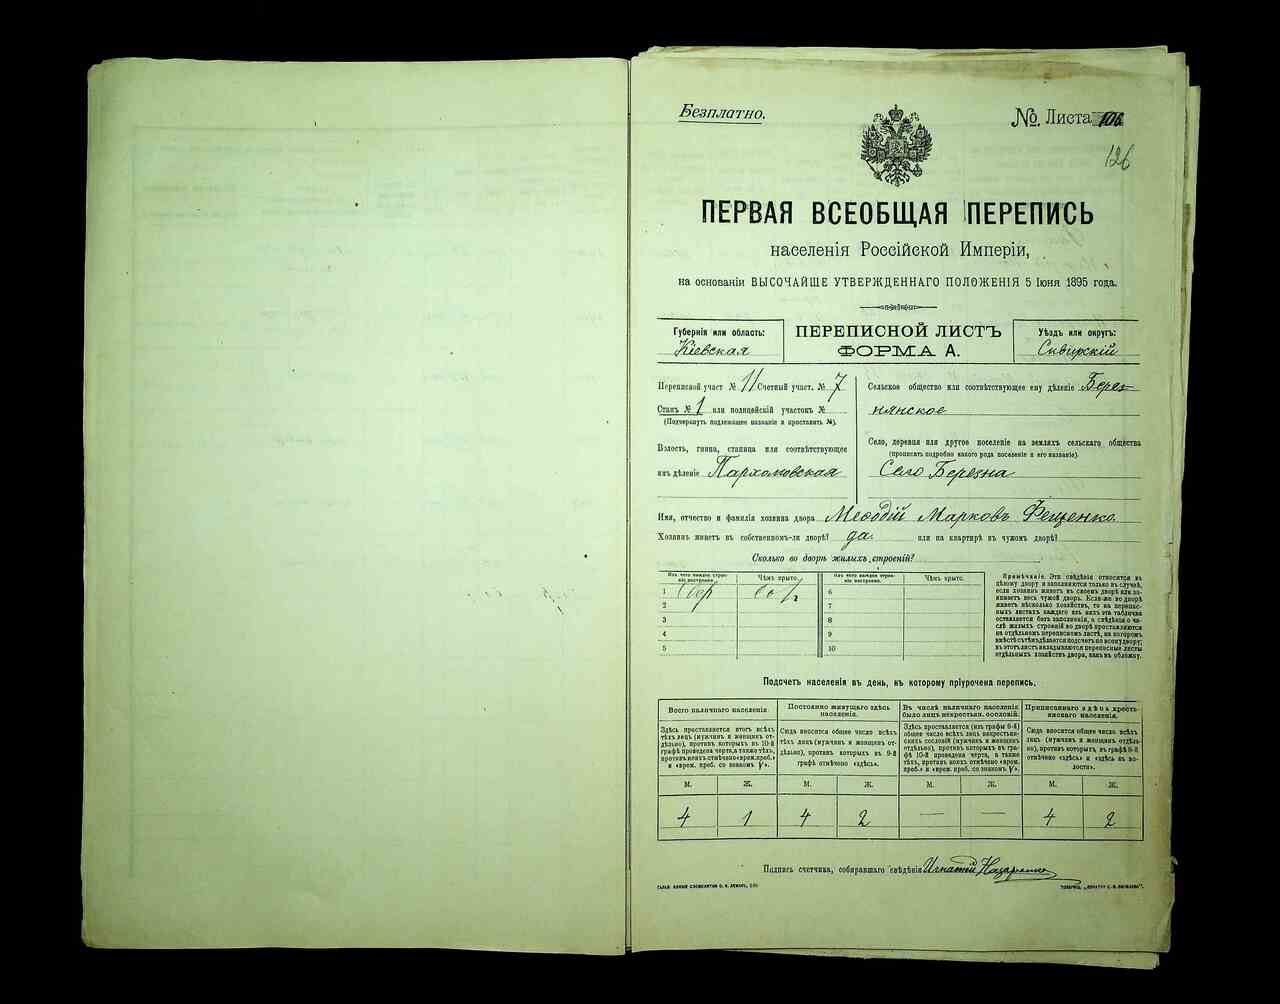 Безплатно.
№ Листа 106
126
ПЕРВАЯ ВСЕОБЩАЯ ПЕРЕПИСЬ
населенія Россійской Имперіи,
на основаніи ВЫСОЧАЙШЕ УТВЕРЖДЕННАГО ПОЛОЖЕНІЯ 5 Іюня 1895 года.
Губернія или область:
Кіевская
ПЕРЕПИСНОЙ ЛИСТЪ
ФОРМА А.
Уѣздъ или округъ:
Сквирскій
Переписной участ № 11 Счетный участ. № 7
Станъ № 1 или полицейскій участокъ №
(Подчеркнуть подлежащее названіе и проставить №).
Волость, гмина, станица или соотвѣтствующее
имъ дѣленіе Пархомовская
Сельское общество или соотвѣтствующее ему дѣленіе Берез-
нянское
Село, деревня или другое поселеніе на земляхъ сельскаго общества
(прописать подробно какого рода поселеніе и его названіе).
Село Березна
Имя, отчество и фамилія хозяина двора Меѳодій Марковъ Фещенко.
Хозяинъ живетъ въ собственномъ-ли дворѣ? да. или на квартирѣ въ чужомъ дворѣ?
Сколько во дворѣ жилыхъ строеній?
Изъ чего каждое строе-
ніе построено.
Чѣмъ крыто.
Изъ чего каждое строе-
ніе построено.
Чѣмъ крыто.
1
6
2
7
3
8
4
9
5
10
Примѣчаніе. Эти свѣдѣнія относятся къ
цѣлому двору и заполняются только въ случаѣ,
если хозяинъ живетъ въ своемъ дворѣ или за-
нимаетъ весь чужой дворъ. Если-же во дворѣ
живетъ нѣсколько хозяйствъ, то на перепис-
ныхъ листахъ каждаго изъ нихъ эта табличка
оставляется безъ заполненія, а свѣдѣнія о чи-
слѣ жилыхъ строеній во дворѣ проставляются
на отдѣльномъ переписномъ листѣ, на которомъ
вмѣстѣ съ тѣмъ дѣлается подсчетъ по всему двору;
въ этотъ листъ вкладываются переписные листы
отдѣльныхъ хозяйствъ двора, какъ въ обложку.
Подсчетъ населенія въ день, къ которому пріурочена перепись.
Всего наличнаго населенія
Здѣсь проставляется итогъ всѣхъ
тѣхъ лицъ (мужчинъ и женщинъ от-
дѣльно), противъ которыхъ въ 10-й
графѣ проведена черта, а также тѣхъ,
противъ коихъ отмѣчено «врем. преб.»
и «врем. преб. со знакомъ V».
Постоянно живущаго здѣсь
населенія.
Сюда вносится общее число всѣхъ
тѣхъ лицъ (мужчинъ и женщинъ от-
дѣльно), противъ которыхъ въ 9-й
графѣ отмѣчено «здѣсь».
Въ числѣ наличнаго населенія
было лицъ некрестьян. сословій.
Здѣсь проставляется (изъ графы 6-й)
общее число всѣхъ лицъ некрестьян-
скихъ сословій (мужчинъ и женщинъ
отдѣльно), противъ которыхъ въ гра-
фѣ 10-й проведена черта, а также
тѣхъ, противъ коихъ отмѣчено «врем.
преб.» и «врем. преб. со знакомъ V».
Приписаннаго здѣсь кресть-
янскаго населенія.
Сюда вносится общее число всѣхъ
лицъ (мужчинъ и женщинъ отдѣль-
но), противъ которыхъ въ графѣ 8-й
отмѣчено «здѣсь» и «здѣсь въ во-
лости».
М. Ж. М. Ж. М. Ж. М. Ж.
4 1 4 2 — — 4 2
Подпись счетчика, собиравшаго свѣдѣнія Игнатій Назаренко